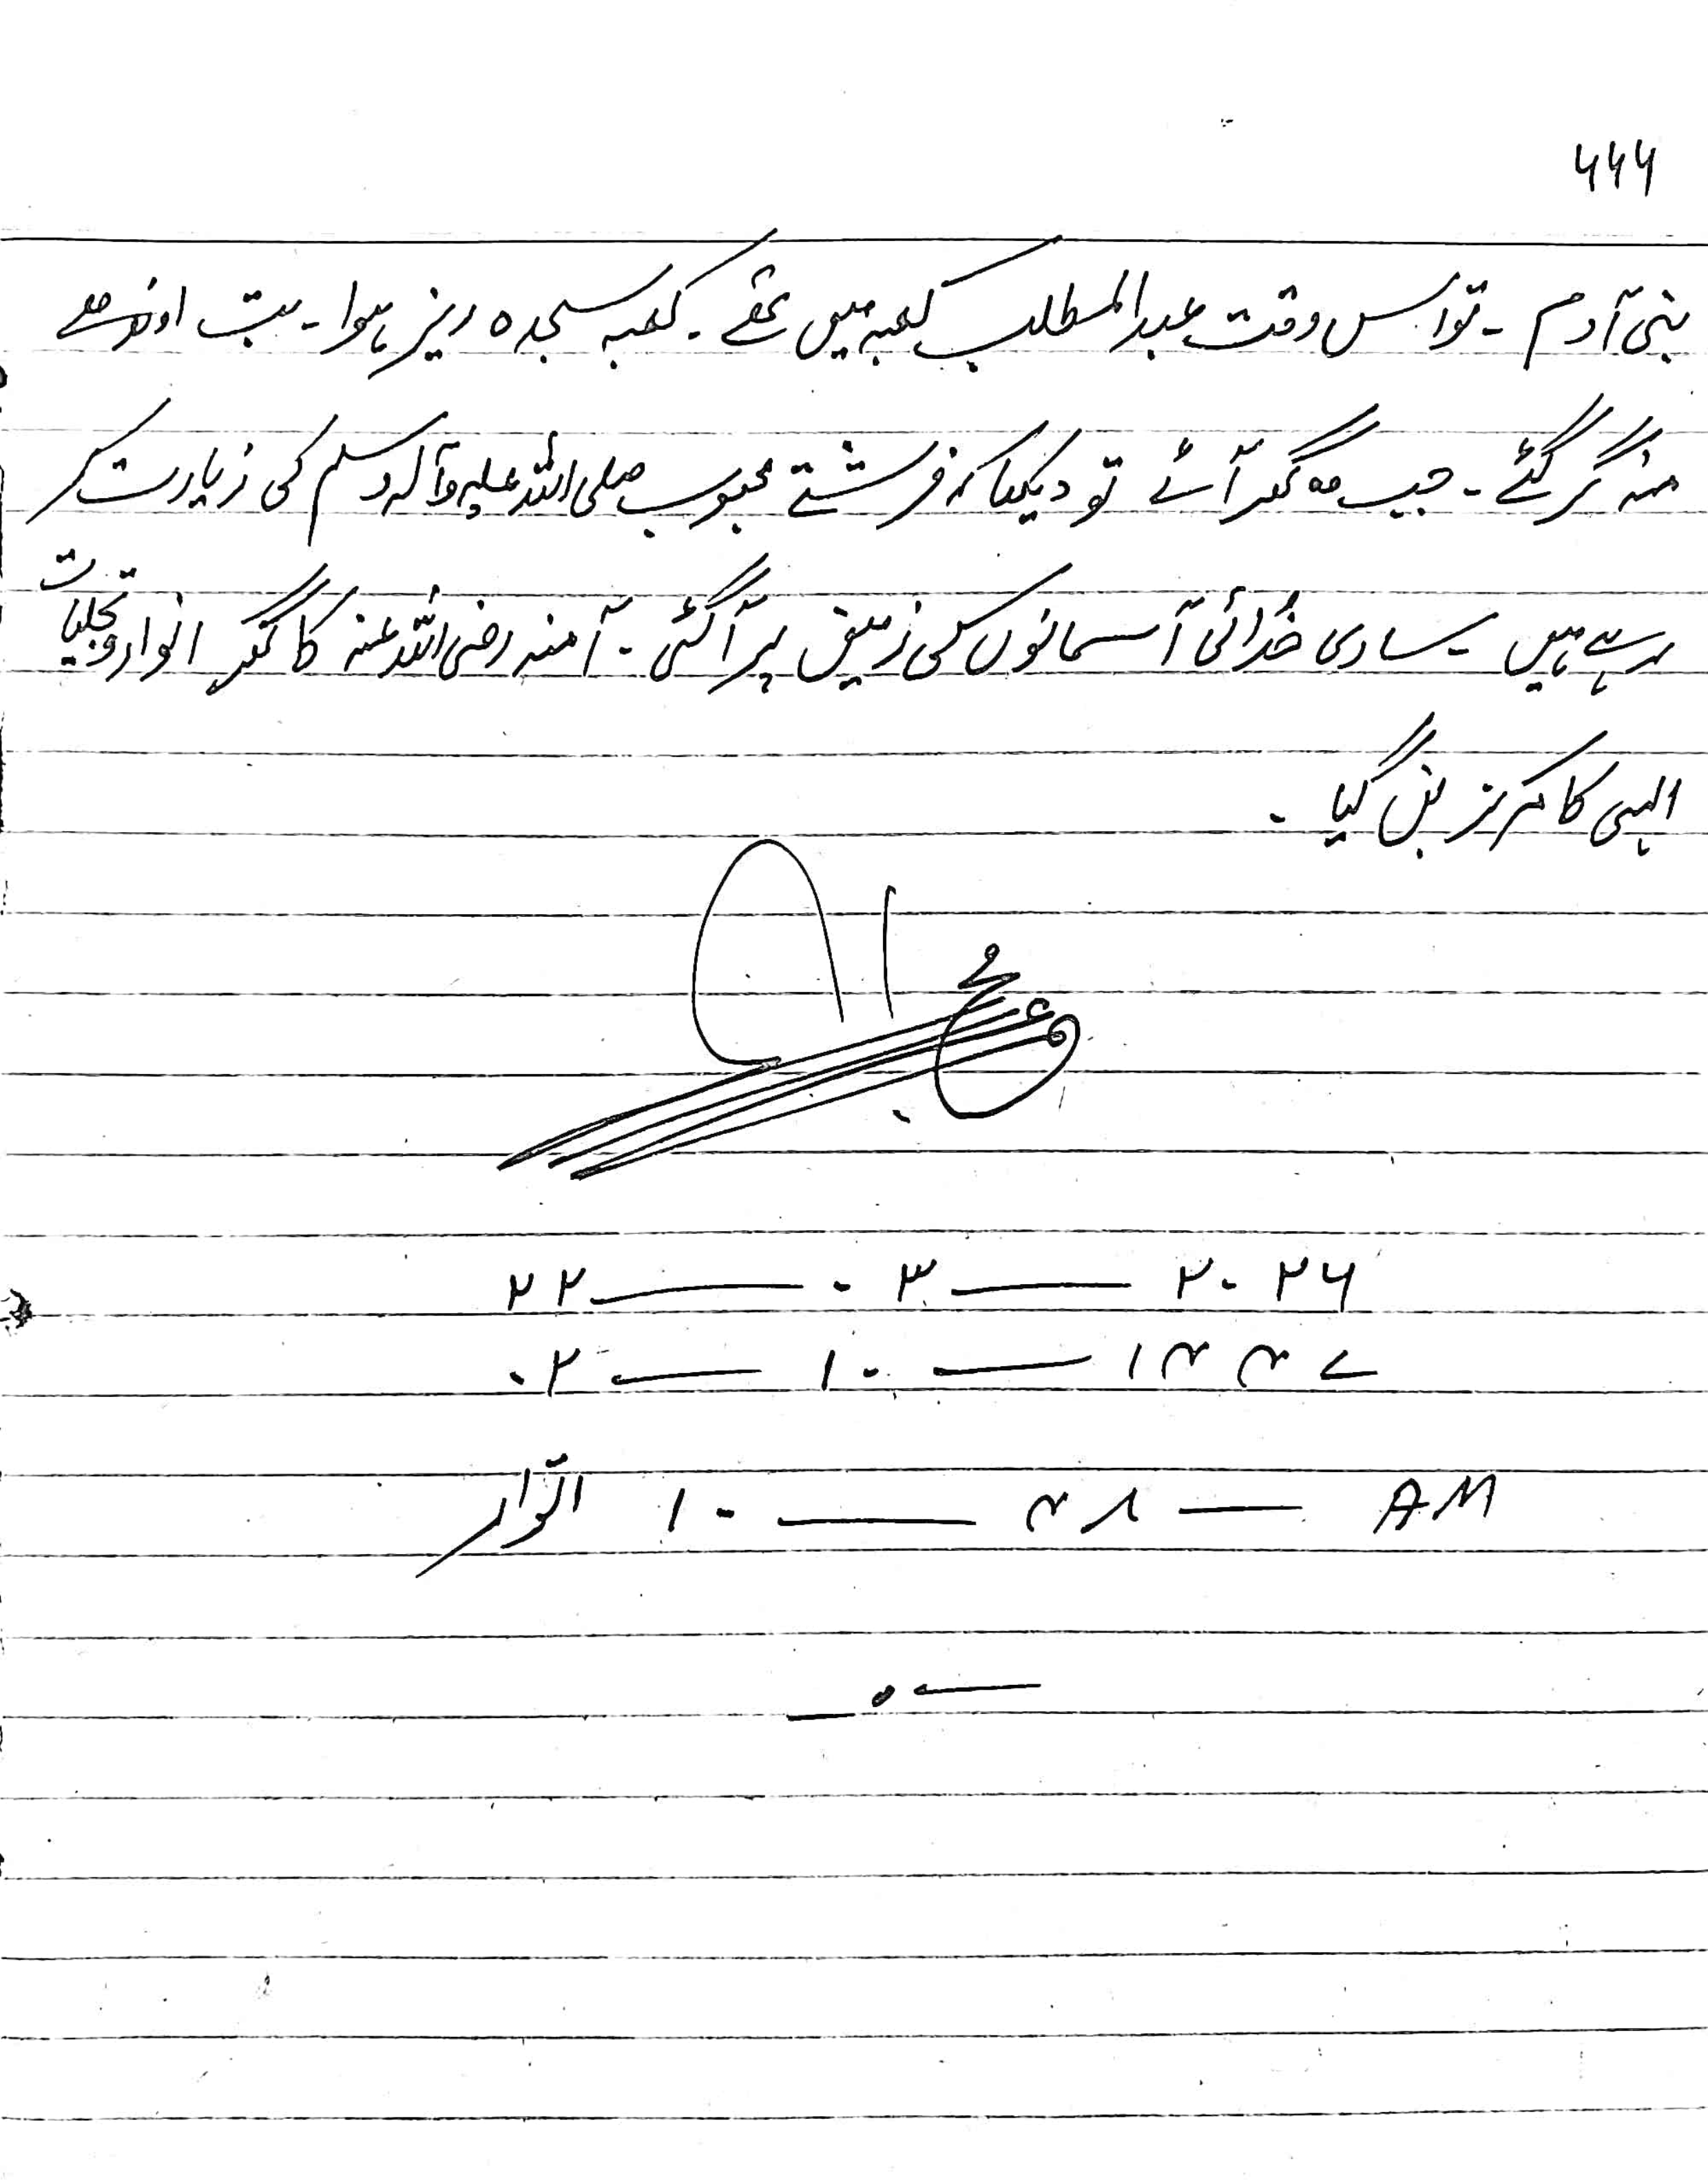 ۶۶۶
بنی آدم ۔ تو اس وقت عبدالمطلب کعبہ میں تھے ۔ کعبہ سجدہ ریز ہوا ۔ بت اوندھے
منہ گر گئے ۔ جب وہ گھر آئے تو دیکھا کہ فرشتے محبوب صلی اللہ علیہ وآلہ وسلم کی زیارت کر
رہے ہیں ۔ ساری خُدائی آسمانوں کی زمین پر آگئی ۔ آمنہ رضی اللہ عنہ کا گھر انوار و تجلیات
الہی کا مرکز بن گیا ۔
۲۲ — ۰۳ — ۲۰۲۶
۰۲ — ۱۰ — ۱۴۴۷
اتوار ۱۰ — ۴۸ — AM